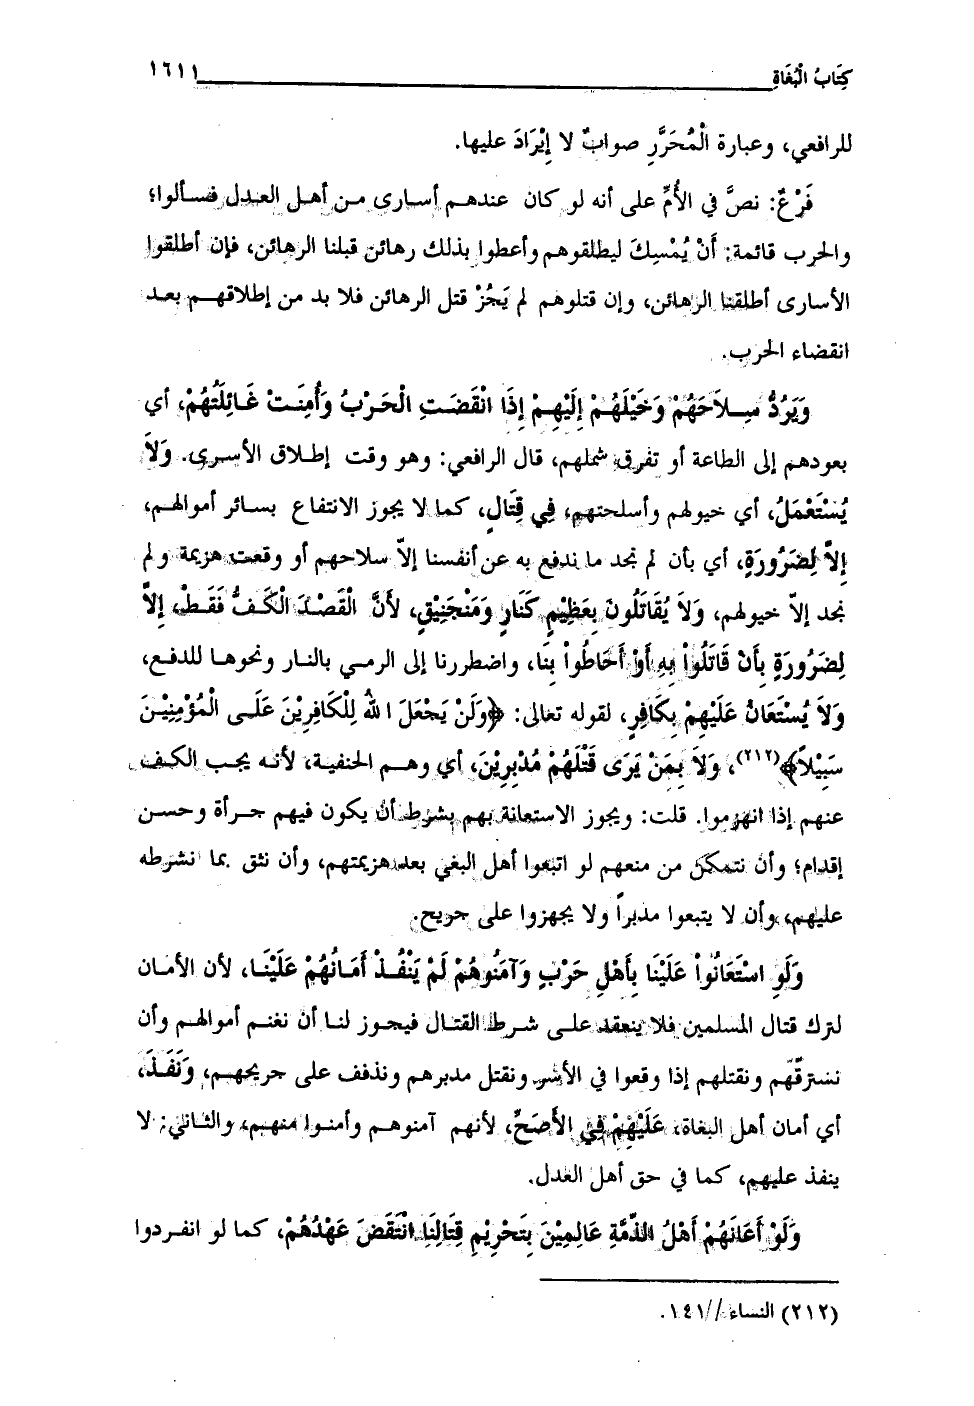 كِتَابُ الْبُغَاةِ ١٦١١
للرافعي، وعبارة الْمُحَرَّرِ صوابٌ لا إِيْرَادَ عليها.
فَرْعٌ: نصَّ في الأُمِّ على أنه لو كان عندهم أسارى من أهل العدل فسألوا؛
والحرب قائمة: أَنْ يُمْسِكَ ليطلقوهم وأعطوا بذلك رهائن قبلنا الرهائن، فإن أطلقوا
الأسارى أطلقنا الرهائن، وإن قتلوهم لم يَجُزْ قتل الرهائن فلا بد من إطلاقهم بعد
انقضاء الحرب.
وَيَرُدُّ سِلاَحَهُمْ وَخَيْلَهُمْ إِلَيْهِمْ إِذَا انْقَضَتِ الْحَرْبُ وَأُمِنَتْ غَائِلَتُهُمْ، أي
بعودهم إلى الطاعة أو تفرق شملهم، قال الرافعي: وهو وقت إطلاق الأسرى. وَلاَ
يُسْتَعْمَلُ، أي خيولهم وأسلحتهم، فِي قِتَالٍ، كما لا يجوز الانتفاع بسائر أموالهم،
إِلاَّ لِضَرُورَةٍ، أي بأن لم نجد ما ندفع به عن أنفسنا إلاّ سلاحهم أو وقعت هزيمة ولم
نجد إلاّ خيولهم، وَلاَ يُقَاتَلُونَ بِعَظِيْمٍ كَنَارٍ وَمَنْجَنِيْقٍ، لأَنَّ الْقَصْدَ الْكَفُّ فَقَطْ، إِلاَّ
لِضَرُورَةٍ بِأَنْ قَاتَلُواْ بِهِ أَوْ أَحَاطُواْ بِنَا، واضطررنا إلى الرمي بالنار ونحوها للدفع،
وَلاَ يُسْتَعَانُ عَلَيْهِمْ بِكَافِرٍ، لقوله تعالى: ﴿وَلَنْ يَجْعَلَ اللهُ لِلْكَافِرِيْنَ عَلَى الْمُؤْمِنِيْنَ
سَبِيْلاً﴾(٢١٢)، وَلاَ بِمَنْ يَرَى قَتْلَهُمْ مُدْبِرِيْنَ، أي وهم الحنفية، لأنه يجب الكف
عنهم إذا انهزموا. قلت: ويجوز الاستعانة بهم بشرط أن يكون فيهم جرأة وحسن
إقدام؛ وأن نتمكن من منعهم لو اتبعوا أهل البغي بعد هزيمتهم، وأن نثق بما نشرطه
عليهم، وأن لا يتبعوا مدبراً ولا يجهزوا على جريح.
وَلَوِ اسْتَعَانُواْ عَلَيْنَا بِأَهْلِ حَرْبٍ وَآمَنُوهُمْ لَمْ يَنْفُذْ أَمَانُهُمْ عَلَيْنَا، لأن الأمان
لترك قتال المسلمين فلا ينعقد على شرط القتال فيجوز لنا أن نغنم أموالهم وأن
نسترقّهم ونقتلهم إذا وقعوا في الأسر ونقتل مدبرهم ونذفف على جريحهم، وَنَفَذَ،
أي أمان أهل البغاة، عَلَيْهِمْ فِي الأَصَحِّ، لأنهم آمنوهم وأمنوا منهم، والثاني: لا
ينفذ عليهم، كما في حق أهل العدل.
وَلَوْ أَعَانَهُمْ أَهْلُ الذِّمَّةِ عَالِمِيْنَ بِتَحْرِيْمِ قِتَالِنَا انْتَقَضَ عَهْدُهُمْ، كما لو انفردوا
(٢١٢) النساء // ١٤١.